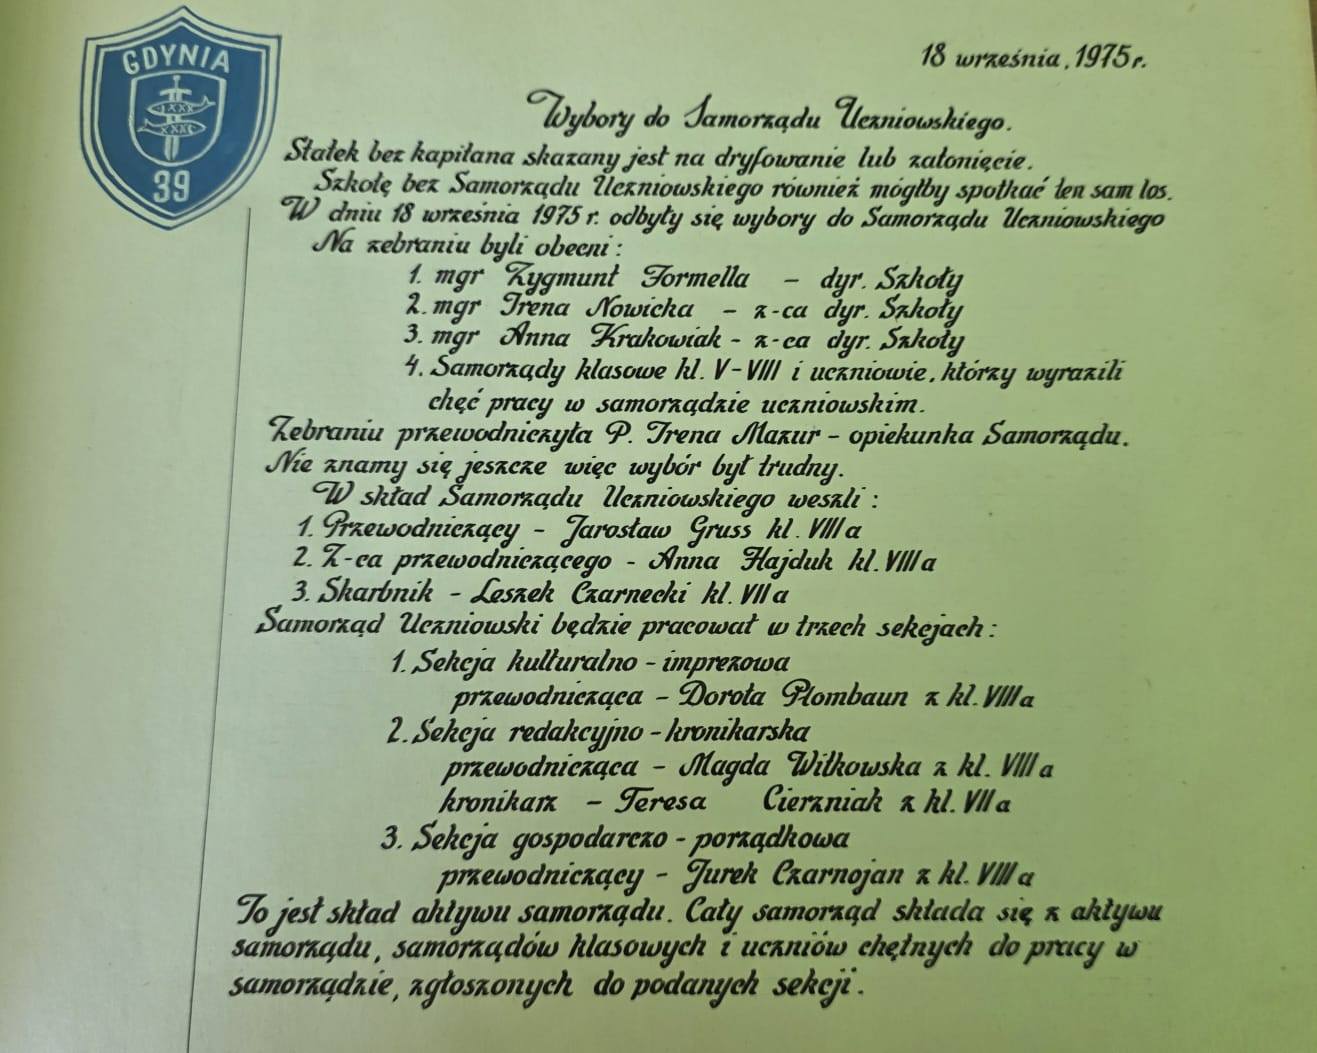 GDYNIA
39
18 września, 1975 r.
Wybory do Samorządu Uczniowskiego.
Statek bez kapitana skazany jest na dryfowanie lub zatonięcie.
Szkołę bez Samorządu Uczniowskiego również mógłby spotkać ten sam los.
W dniu 18 września 1975 r. odbyły się wybory do Samorządu Uczniowskiego
Na zebraniu byli obecni :
1. mgr Zygmunt Formella – dyr. Szkoły
2. mgr Irena Nowicka – z-ca dyr. Szkoły
3. mgr Anna Krakowiak - z-ca dyr. Szkoły
4. Samorządy klasowe kl. V-VIII i uczniowie, którzy wyrazili
chęć pracy w samorządzie uczniowskim.
Zebraniu przewodniczyła P. Irena Mazur – opiekunka Samorządu.
Nie znamy się jeszcze więc wybór był trudny.
W skład Samorządu Uczniowskiego weszli :
1. Przewodniczący - Jarosław Gruss kl. VIII a
2. Z-ca przewodniczącego - Anna Hajduk kl. VIII a
3. Skarbnik - Leszek Czarnecki kl. VII a
Samorząd Uczniowski będzie pracował w trzech sekcjach :
1. Sekcja kulturalno - imprezowa
przewodnicząca – Dorota Plombaun z kl. VIII a
2. Sekcja redakcyjno - kronikarska
przewodnicząca – Magda Witkowska z kl. VIII a
kronikarz – Teresa Cierzniak z kl. VII a
3. Sekcja gospodarczo - porządkowa
przewodniczący - Jurek Czarnojan z kl. VIII a
To jest skład aktywu samorządu. Cały samorząd składa się z aktywu
samorządu, samorządów klasowych i uczniów chętnych do pracy w
samorządzie, zgłoszonych do podanych sekcji.